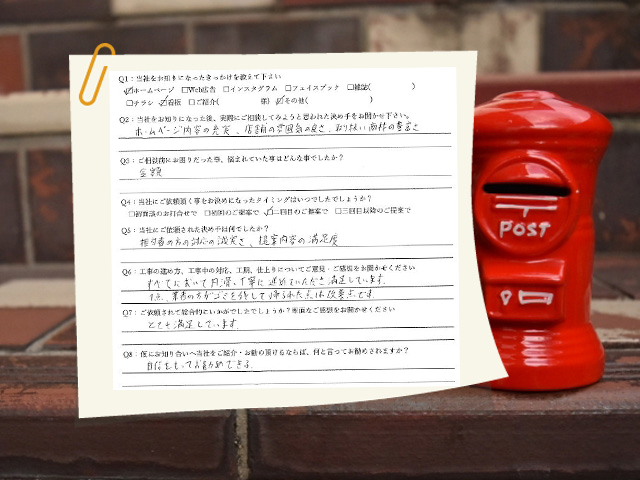 Q1：当社をお知りになったきっかけを教えて下さい
☑ホームページ □Web広告 □インスタグラム □フェイスブック □雑誌( )
□チラシ ☑看板 □ご紹介( 様) ☑その他( )
Q2：当社をお知りになった後、実際にご相談してみようと思われた決め手をお聞かせ下さい。
ホームページ内容の充実、店舗の雰囲気の良さ、取り扱い商材の豊富さ
Q3：ご相談前にお困りだった事、悩まれていた事はどんな事でしたか？
金額
Q4：当社にご依頼頂く事をお決めになったタイミングはいつでしたでしょうか？
□初面談のお打合せで □初回のご提案で ☑二回目のご提案で □三回目以降のご提案で
Q5：当社にご依頼された決め手は何でしたか？
担当者の方の対応の誠実さ、提案内容の満足度
Q6：工事の進め方、工事中の対応、工期、仕上りについてご意見・ご感想をお聞かせください
すべてにおいて円滑、丁寧に進めていただき満足しています。
1点、業者の方がゴミを残して帰られた点は改善点です。
Q7：ご依頼されて総合的にいかがでしたでしょうか？率直なご感想をお聞かせください
とても満足しています。
Q8：仮にお知り合いへ当社をご紹介・お勧め頂けるならば、何と言ってお勧めされますか？
自信をもってお勧めできる。
POST